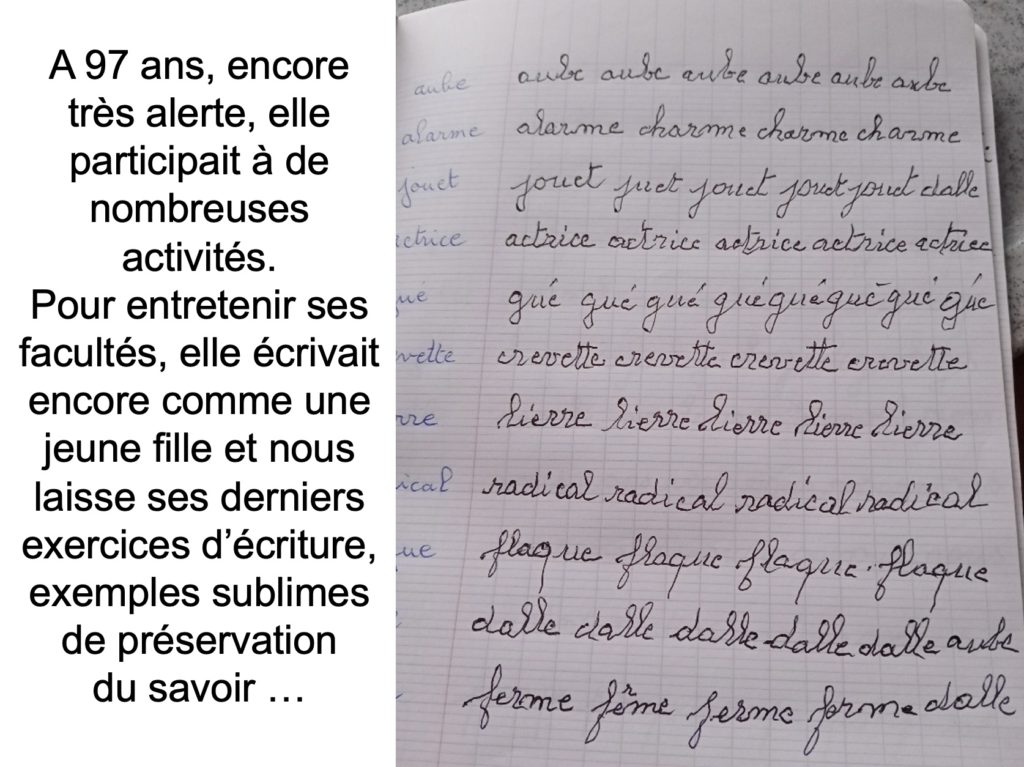 A 97 ans, encore
très alerte, elle
participait à de
nombreuses
activités.
Pour entretenir ses
facultés, elle écrivait
encore comme une
jeune fille et nous
laisse ses derniers
exercices d’écriture,
exemples sublimes
de préservation
du savoir …
aube aube aube aube aube aube aube
alarme alarme charme charme charme
jouet jouet juet jouet jouet jouet dalle
actrice actrice actrice actrice actrice actrice
ué gué gué gué gué gué gué gué gué
vette crevette crevette crevette crevette
rre lierre lierre lierre lierre lierre
ical radical radical radical radical
ue flaque flaque flaque flaque
dalle dalle dalle dalle dalle aube
ferme ferme ferme ferme dalle